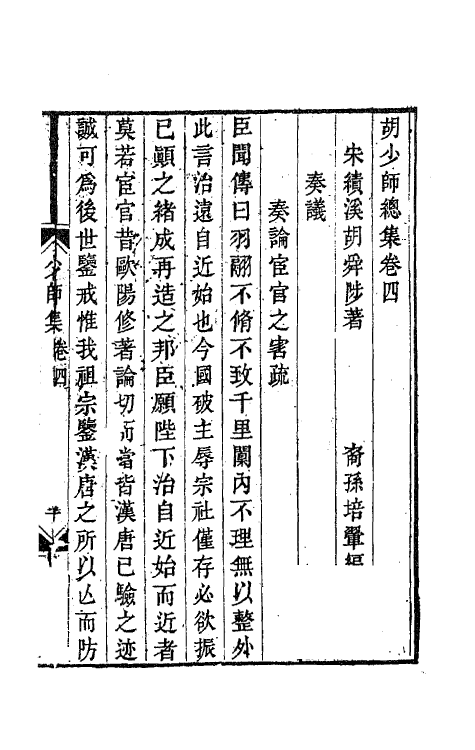 胡少師總集卷四
宋績溪胡舜陟著　　裔孫培翬編
奏議
奏論宦官之害疏
臣聞傳曰羽翮不脩不致千里閫內不理無以整外
此言治遠自近始也今國破主辱宗社僅存必欲振
已顛之緒成再造之邦臣願陛下治自近始而近者
莫若宦官昔歐陽修著論切而當皆漢唐已驗之迹
誠可爲後世鑒戒惟我祖宗鑒漢唐之所以亾而防
少師集 卷四